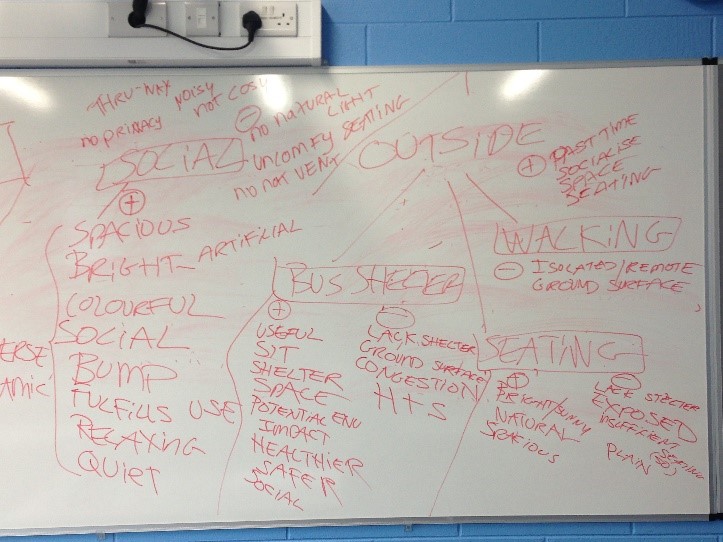 THRU-WAY NOISY
no PRIVACY not COSY
⊖ no NATURAL LIGHT
UNCOMFY SEATING
no nat VENT
SOCIAL
⊕
SPACIOUS
BRIGHT - ARTIFICIAL
COLOURFUL
SOCIAL
BUMP
FULFILLS USE
RELAXING
QUIET
ERSE
AMIC
OUTSIDE
⊕ PASTTIME
SOCIALISE
SPACE
SEATING
WALKING
⊖ ISOLATED/REMOTE
GROUND SURFACE
BUS SHELTER
⊕
USEFUL
SIT
SHELTER
SPACE
POTENTIAL ENV
IMPACT
HEALTHIER
SAFER
SOCIAL
⊖
LACK SHELTER
GROUND SURFACE
CONGESTION
H+S
SEATING
⊕
BRIGHT/SUNNY
NATURAL
SPACIOUS
⊖
LACK SHELTER
EXPOSED
INSUFFICIENT
SEATING
PLAIN